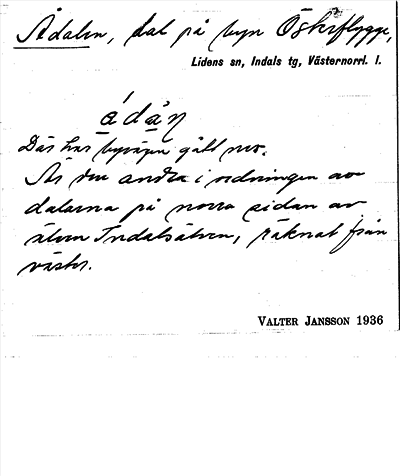 Ådalen, dal på byn Österflygge,
Lidens sn, Indals tg, Västernorrl. l.
ádàn
Där har byvägen gått ner.
Är den andra i ordningen av
dalarna på norra sidan av
älven Indalsälven, räknat från
väster.
VALTER JANSSON 1936